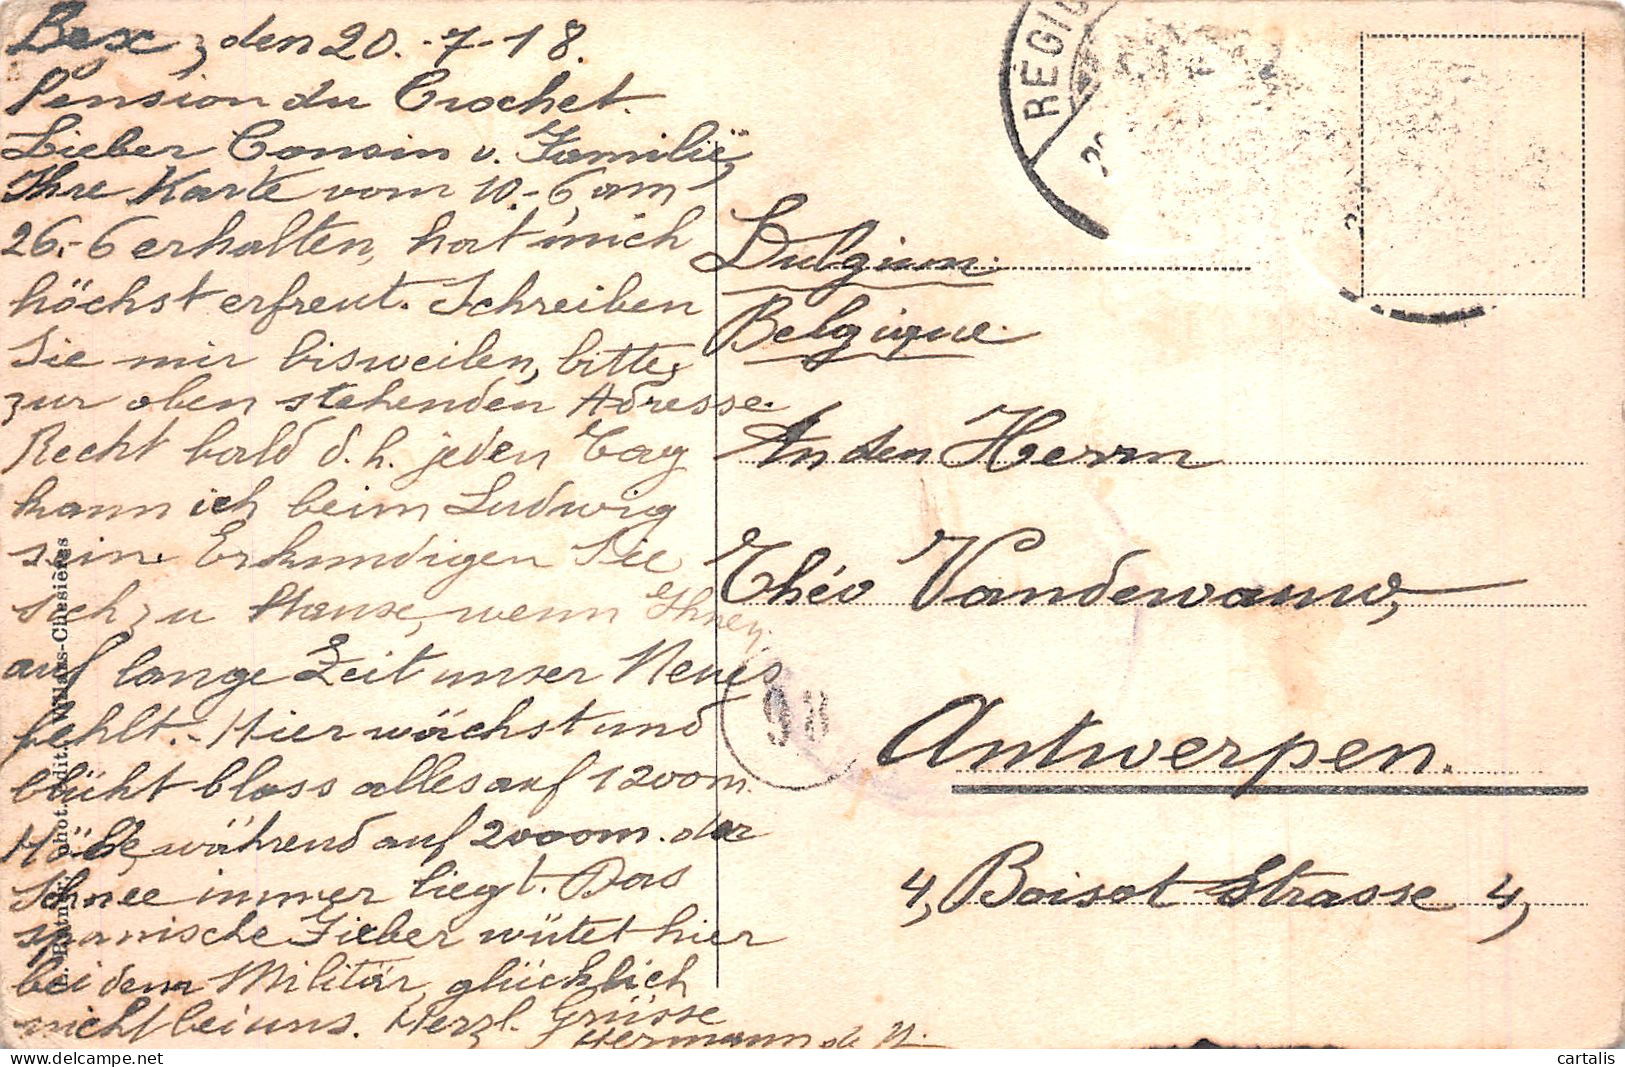 Bex, den 20.-7-18.
Pension du Crochet.
Lieber Cousin u. Familië,
Ihre Karte vom 10.-6, am
26.-6 erhalten, hat mich
höchst erfreut. Schreiben
Sie mir bisweilen, bitte,
zur oben stehenden Adresse.
Recht bald d. h. jeden Tag
kann ich beim Ludwig
sein. Erkundigen Sie
sich zu Hause, wenn Ihnen
auf lange Zeit unser Neues
fehlt.- Hier wächst und
blüht bloss alles auf 1200m.
Höhe, während auf 2000m. der
Schnee immer liegt. Das
spanische Fieber wütet hier
bei dem Militär, glücklich
nicht bei uns. Herzl. Grüsse
Hermann
Villars-Chesières
RÉGIO
Belgium.
Belgique.
An den Herrn
Théo Vandewauw,
Antwerpen.
4, Boisot Strasse 4,
cartalis